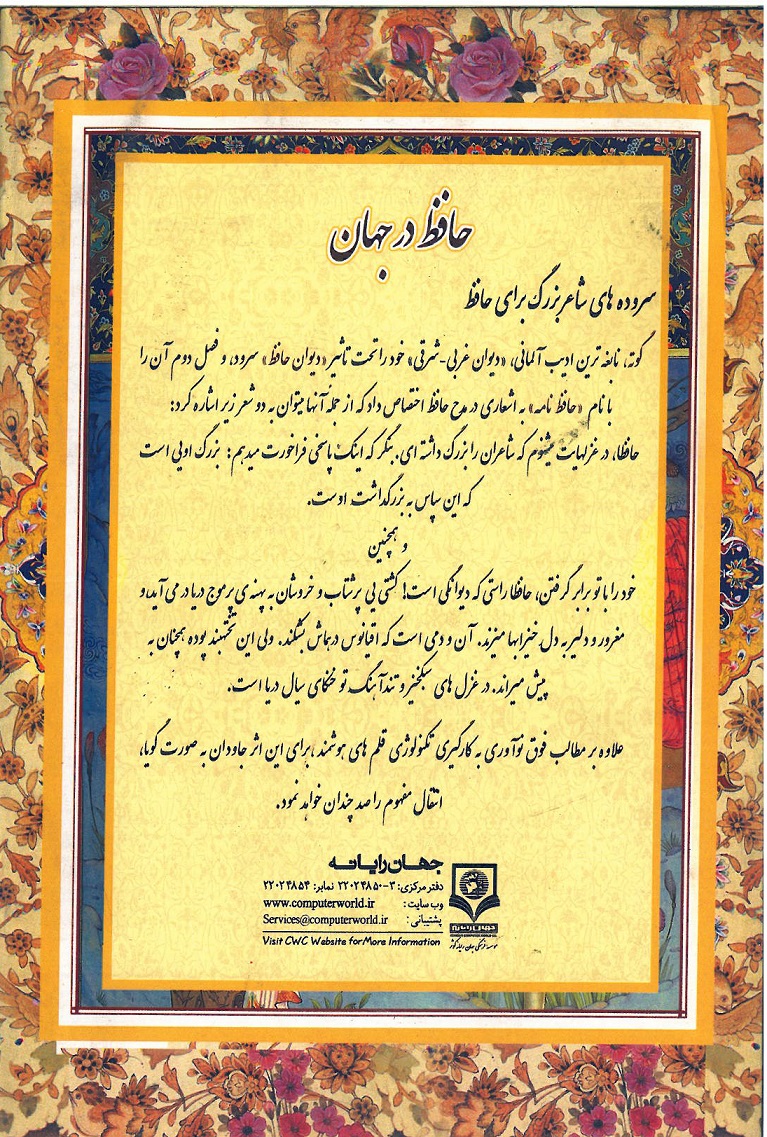 حافظ در جهان
سروده های شاعر بزرگ برای حافظ
گوته، نابغه ترین ادیب آلمانی، «دیوان غربی-شرقی» خود را تحت تاثیر «دیوان حافظ» سرود، و فصل دوم آن را
با نام «حافظ نامه» به اشعاری در مدح حافظ اختصاص داد که از جمله آنها میتوان به دو شعر زیر اشاره کرد:
حافظا، در غزلهایت میشنوم که شاعران را بزرگ داشته ای. بنگر که اینک پاسخی فراخورت میدهم: بزرگ اویی است
که این سپاس به بزرگداشت اوست.
و همچنین
خود را با تو برابر گرفتن، حافظا راستی که دیوانگی است! کشتی یی پرشتاب و خروشان به پهنه ی پرموج دریا در می آید، و
مغرور و دلیر به دل خیزابها میزند. آن و دمی است که اقیانوس درهماش بشکند. ولی این تختهبند پوده همچنان به
پیش میراند. در غزل های سبکخیز و تندآهنگ تو خنکای سیال دریا است.
علاوه بر مطالب فوق نوآوری به کارگیری تکنولوژی قلم های هوشمند ،برای این اثر جاودان به صورت گویا،
انتقال مفهوم را صد چندان خواهد نمود.
جهان رایانه
دفتر مرکزی: ۳-۲۲۰۲۴۸۵۰ نمابر: ۲۲۰۲۴۸۵۴
وب سایت : www.computerworld.ir
پشتیبانی : Services@computerworld.ir
Visit CWC Website for More Information
جهان رایانه
موسسه فرهنگی جهان رایانه کوثر